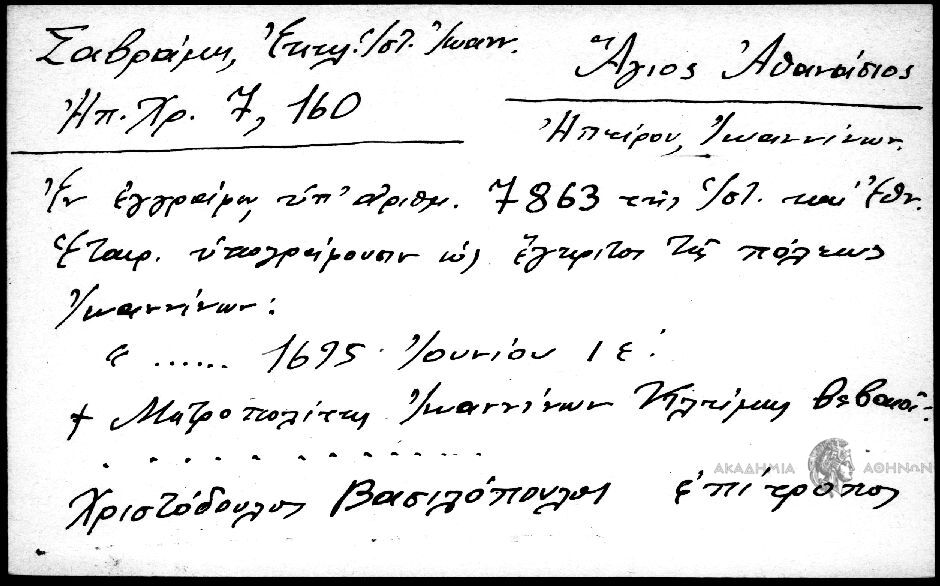 Σαβράμη, Ἐκκλ. Ἱστ. Ἰωανν.
Ἠπ. Χρ. 7, 160
Ἅγιος Ἀθανάσιος
Ἠπείρου, Ἰωαννίνων.
Ἐν ἐγγράφῳ, ὑπ' ἀριθμ. 7863 τῆς Ἱστ. καὶ Ἐθν.
Ἑταιρ. ὑπογράφουσιν ὡς ἔγκριτοι τῆς πόλεως
Ἰωαννίνων:
" ...... 1695 Ἰουνίου ιε΄.
+ Μητροπολίτης Ἰωαννίνων Κλήμης βεβαιοῖ:
. . . . . . . . . . . . . .
ΑΚΑΔΗΜΙΑ ΑΘΗΝΩΝ
Χριστόδουλος Βασιλόπουλος ἐπίτροπος